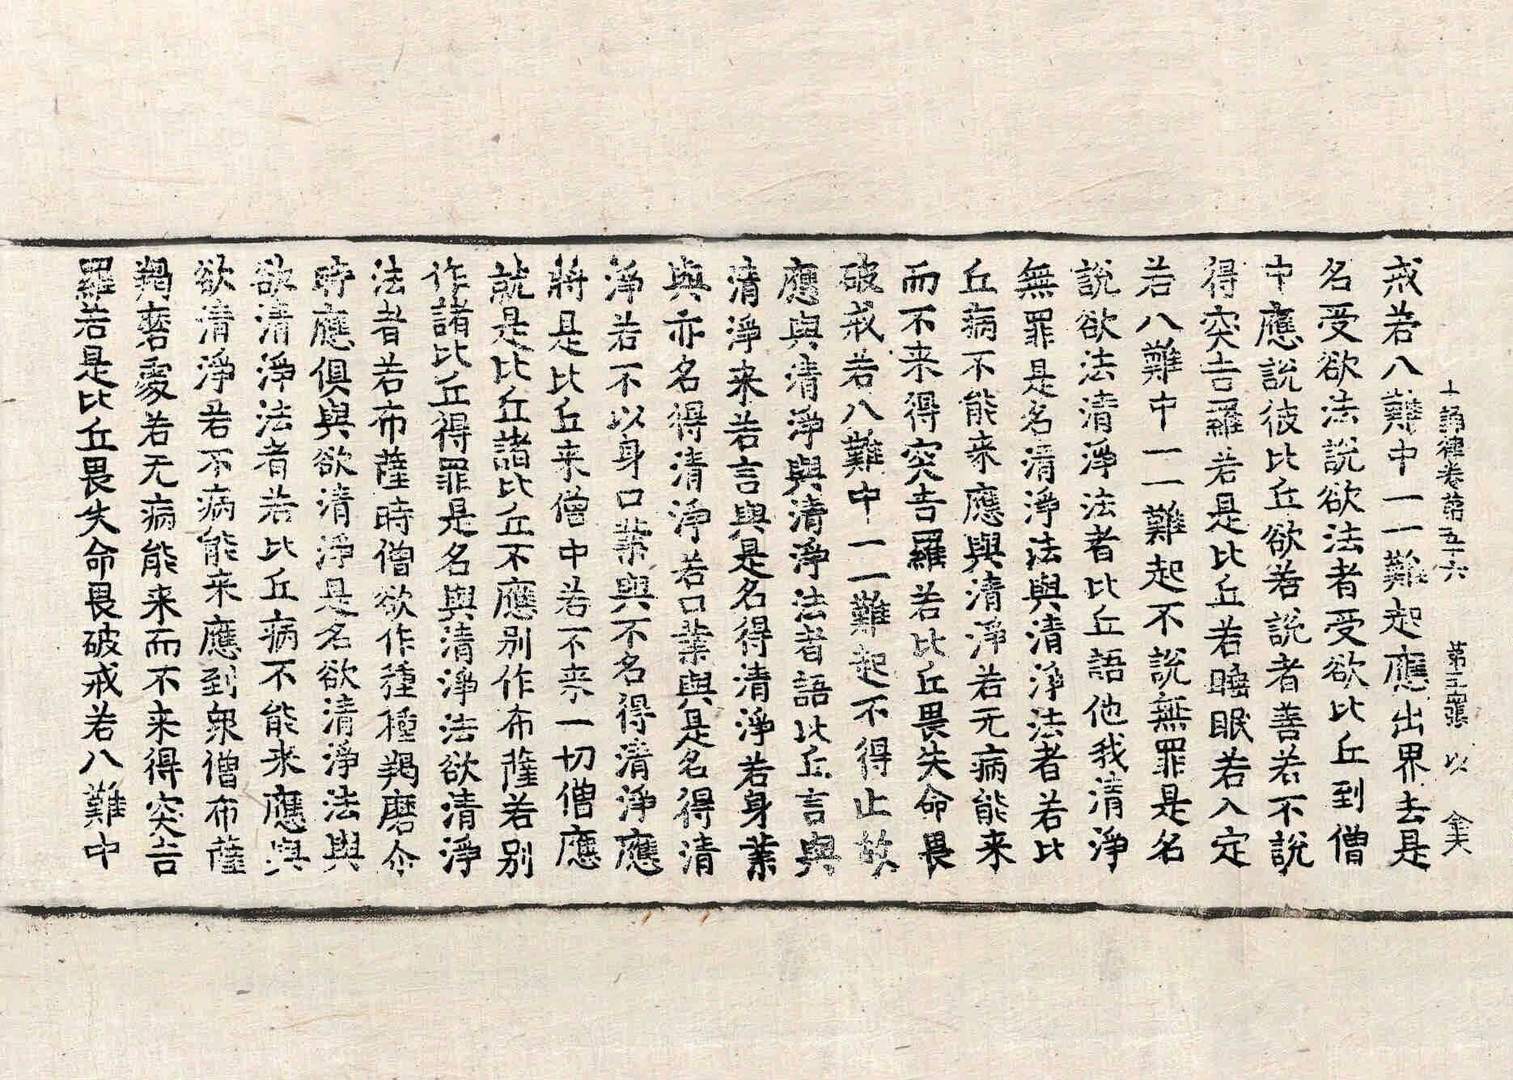 戒若八難中一一難起應出界去是
十誦律卷第五十六 第三張 以 金天
名受欲法說欲法者受欲比丘到僧
中應說彼比丘欲若說者善若不說
得突吉羅若是比丘若睡眠若入定
若八難中一一難起不說無罪是名
說欲法清淨法者比丘語他我清淨
無罪是名清淨法與清淨法者若比
丘病不能來應與清淨若无病能来
而不来得突吉羅若比丘畏失命畏
破戒若八難中一一難起不得止故
應與清淨與清淨法者語比丘言與
清淨来若言與是名得清淨若身業
與亦名得清淨若口業與是名得清
淨若不以身口業與不名得清淨應
將是比丘来僧中若不来一切僧應
就是比丘諸比丘不應別作布薩若別
作諸比丘得罪是名與清淨法欲清淨
法者若布薩時僧欲作種種羯磨尒
時應俱與欲清淨是名欲清淨法與
欲清淨法者若比丘病不能来應與
欲清淨若不病能来應到衆僧布薩
羯磨處若无病能来而不来得突吉
羅若是比丘畏失命畏破戒若八難中